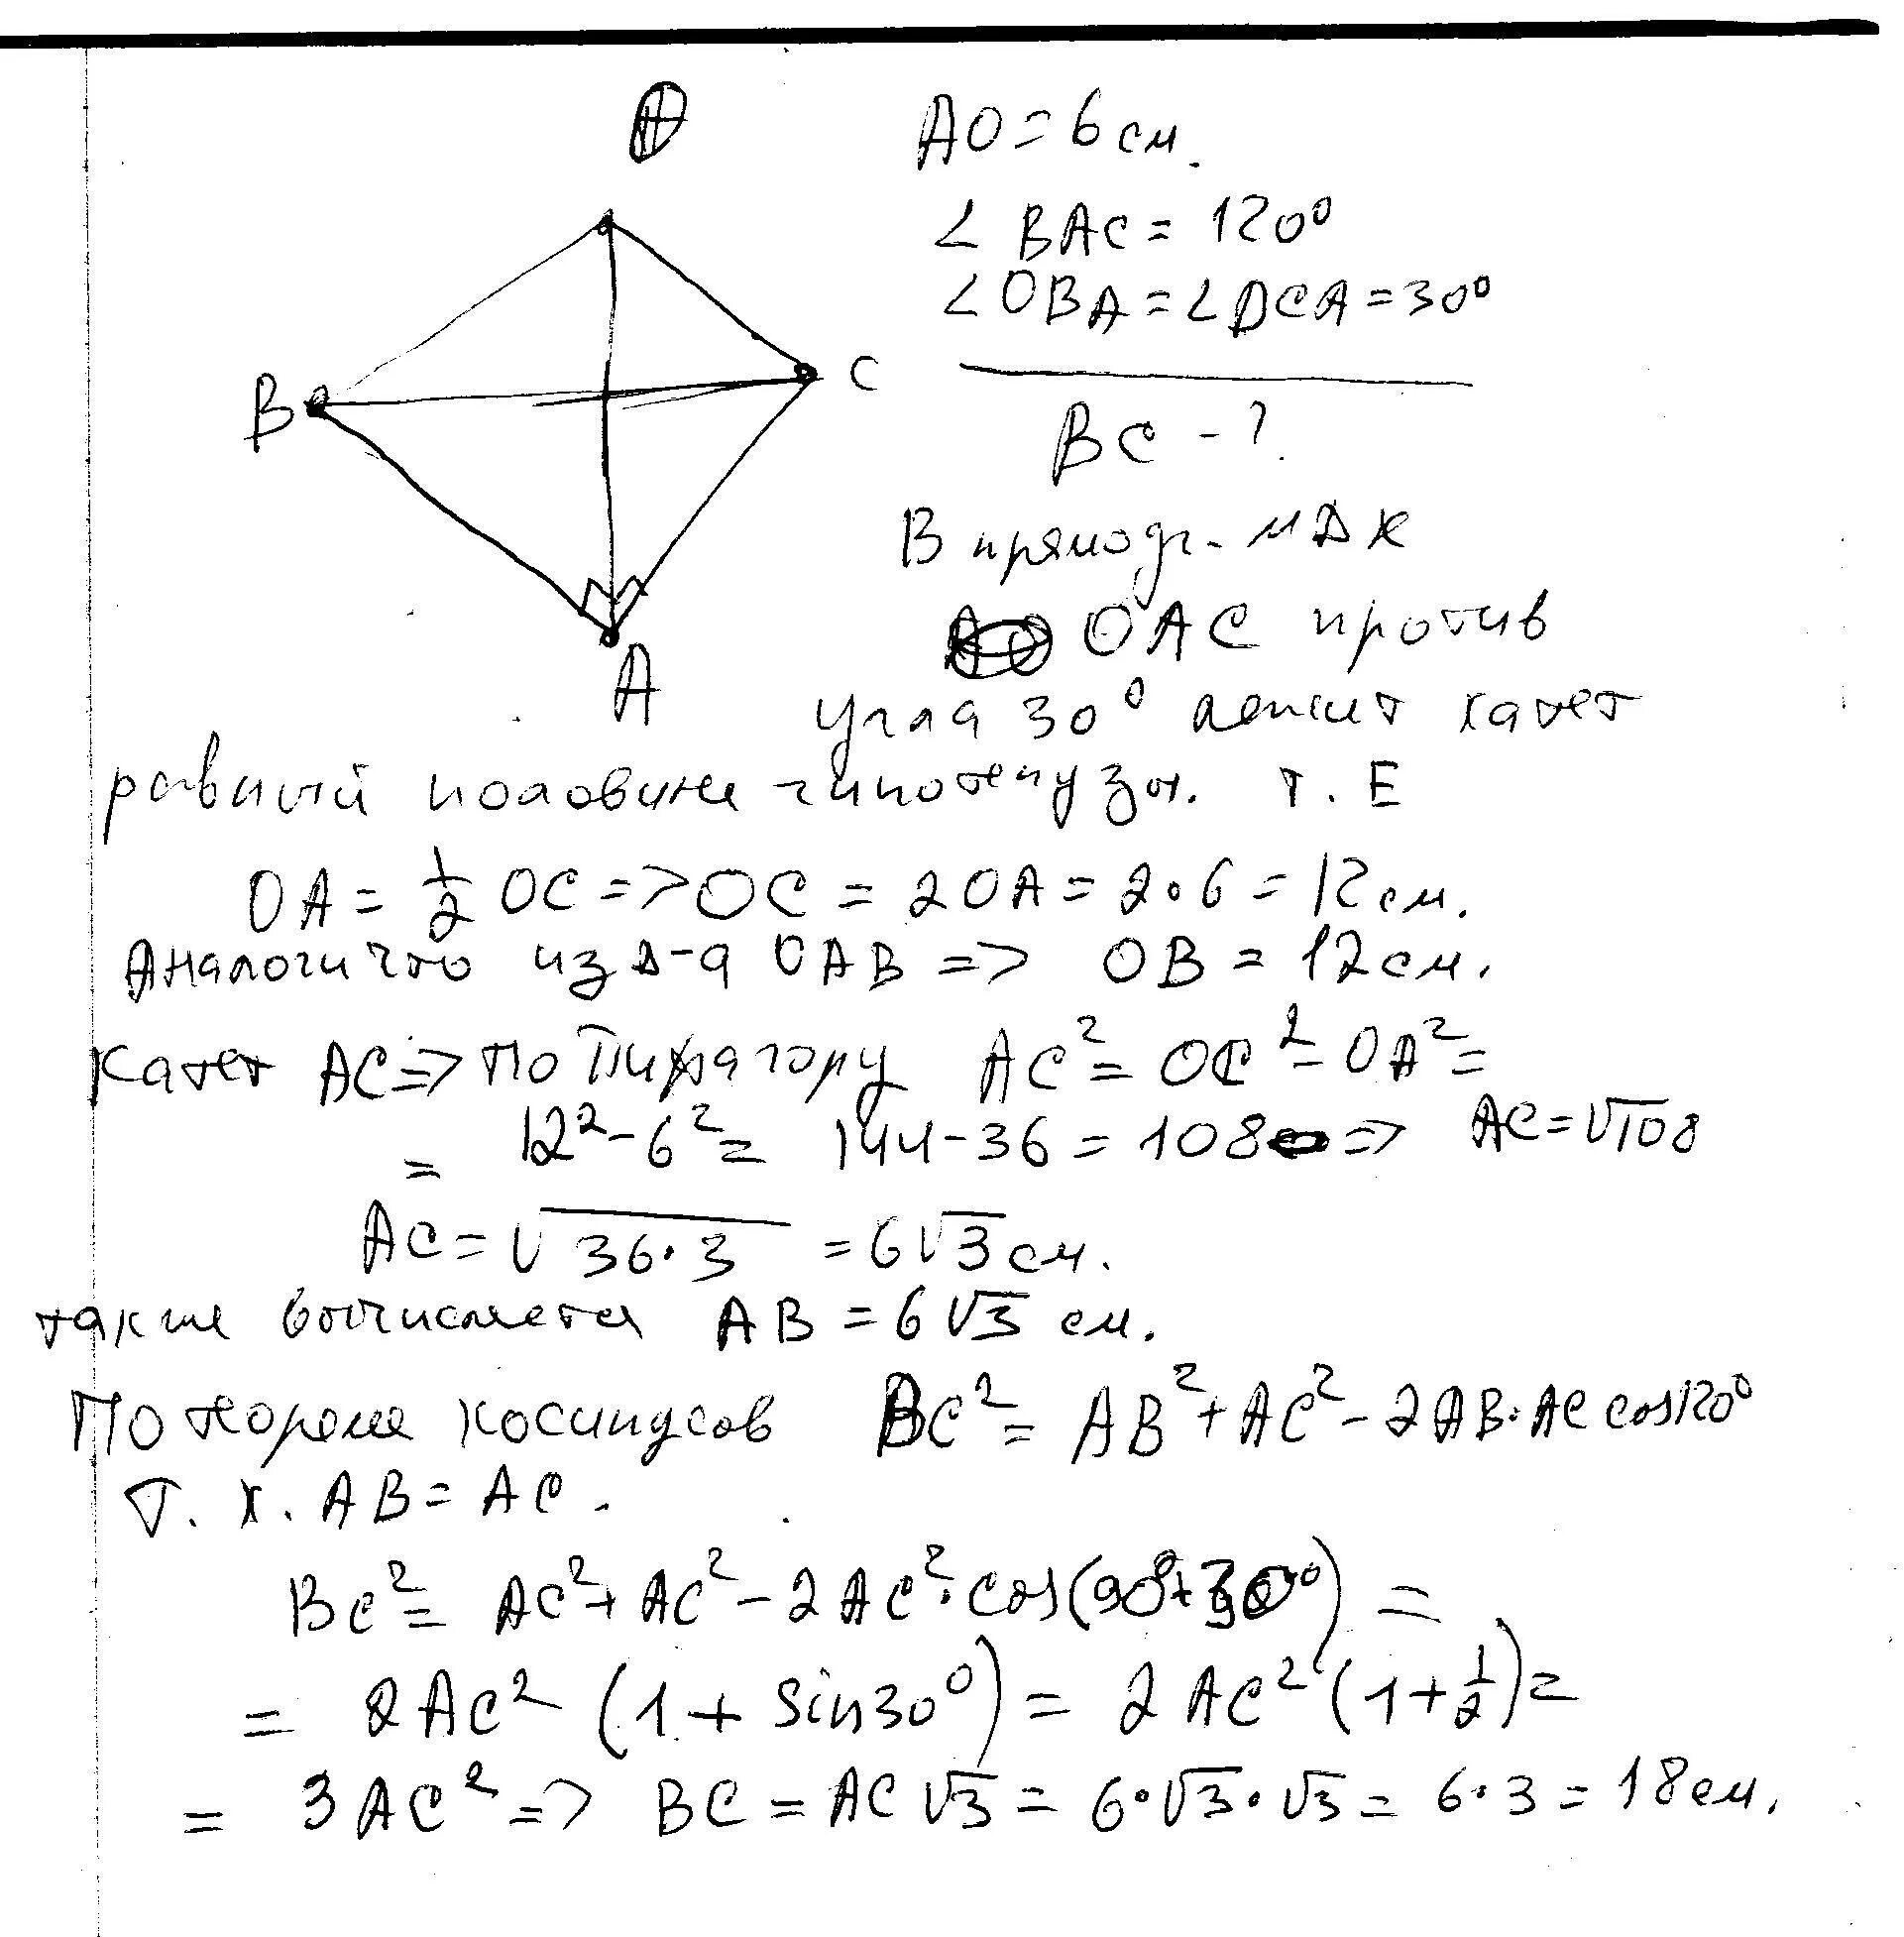 AO = 6 см.
∠ BAC = 120°
∠OBA = ∠DCA = 30°
B
C
BC - ?
В прямоуг-м Δ-к
OAC против
A
угла 30° лежит катет
равный половине гипотенузы. т. Е
OA = 1/2 OC => OC = 2OA = 2·6 = 12 см.
Аналогично из Δ-а OAB => OB = 12 см.
Катет AC => по Пифагору AC² = OC² - OA² =
= 12² - 6² = 144 - 36 = 108 => AC = √108
AC = √36·3 = 6√3 см.
также вычисляется AB = 6√3 см.
По теореме косинусов BC² = AB² + AC² - 2AB·AC cos120°
Т. к. AB = AC.
BC² = AC² + AC² - 2AC²·cos(90°+30°) =
= 2AC² (1 + sin30°) = 2AC² (1 + 1/2) =
= 3AC² => BC = AC√3 = 6·√3·√3 = 6·3 = 18 см.